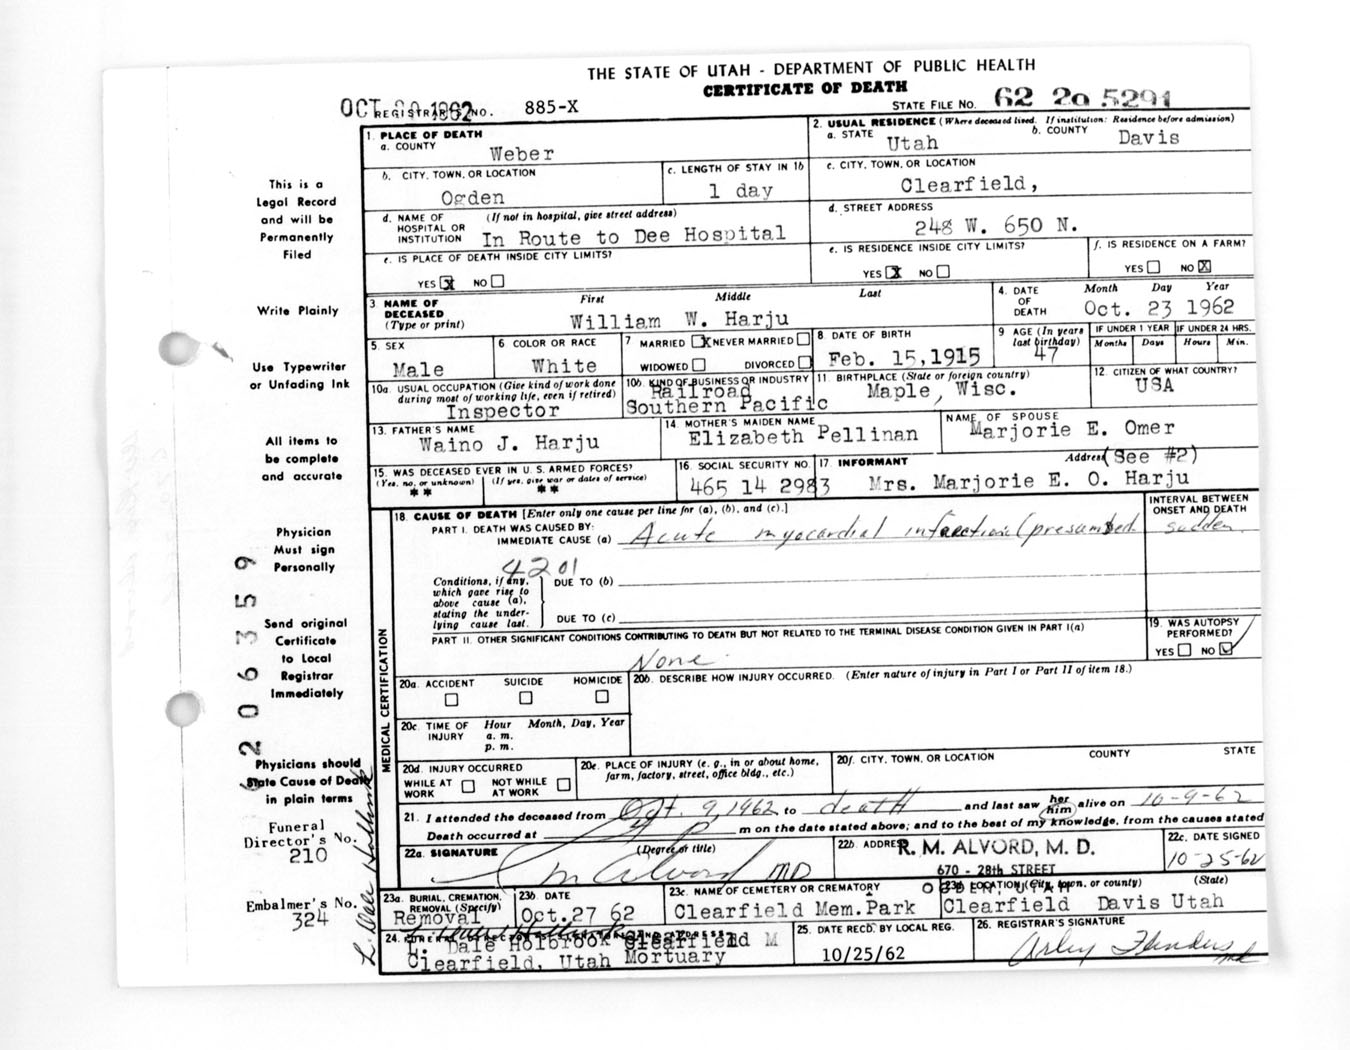 THE STATE OF UTAH - DEPARTMENT OF PUBLIC HEALTH
CERTIFICATE OF DEATH
REGISTRAR'S NO. 885-X
STATE FILE NO. 62 20 5291
1. PLACE OF DEATH
a. COUNTY
Weber
2. USUAL RESIDENCE (Where deceased lived. If institution: Residence before admission)
a. STATE Utah
b. COUNTY Davis
b. CITY, TOWN, OR LOCATION
Ogden
c. LENGTH OF STAY IN 1b
1 day
c. CITY, TOWN, OR LOCATION
Clearfield,
d. NAME OF HOSPITAL OR INSTITUTION (If not in hospital, give street address)
In Route to Dee Hospital
d. STREET ADDRESS
248 W. 650 N.
e. IS PLACE OF DEATH INSIDE CITY LIMITS?
YES X NO
e. IS RESIDENCE INSIDE CITY LIMITS?
YES X NO
f. IS RESIDENCE ON A FARM?
YES NO X
3. NAME OF DECEASED (Type or print)
First Middle Last
William W. Harju
4. DATE OF DEATH
Month Day Year
Oct. 23 1962
5. SEX
Male
6 COLOR OR RACE
White
7 MARRIED X NEVER MARRIED
WIDOWED DIVORCED
8 DATE OF BIRTH
Feb. 15,1915
9 AGE (In years last birthday)
47
IF UNDER 1 YEAR
Months Days
IF UNDER 24 HRS.
Hours Min.
10a. USUAL OCCUPATION (Give kind of work done during most of working life, even if retired)
Inspector
10b. KIND OF BUSINESS OR INDUSTRY
Railroad
Southern Pacific
11. BIRTHPLACE (State or foreign country)
Maple, Wisc.
12. CITIZEN OF WHAT COUNTRY?
USA
13. FATHER'S NAME
Waino J. Harju
14. MOTHER'S MAIDEN NAME
Elizabeth Pellinan
NAME OF SPOUSE
Marjorie E. Omer
15. WAS DECEASED EVER IN U. S. ARMED FORCES?
(Yes, no, or unknown) (If yes, give war or dates of service)
** **
16. SOCIAL SECURITY NO.
465 14 2983
17. INFORMANT Address (See #2)
Mrs. Marjorie E. O. Harju
18. CAUSE OF DEATH [Enter only one cause per line for (a), (b), and (c).]
INTERVAL BETWEEN ONSET AND DEATH
PART I. DEATH WAS CAUSED BY:
IMMEDIATE CAUSE (a) Acute myocardial infarction (presumed sudden
4201
Conditions, if any, which gave rise to above cause (a), stating the underlying cause last.
DUE TO (b)
DUE TO (c)
PART II. OTHER SIGNIFICANT CONDITIONS CONTRIBUTING TO DEATH BUT NOT RELATED TO THE TERMINAL DISEASE CONDITION GIVEN IN PART I(a)
None
19. WAS AUTOPSY PERFORMED?
YES NO
20a. ACCIDENT SUICIDE HOMICIDE
20b. DESCRIBE HOW INJURY OCCURRED. (Enter nature of injury in Part I or Part II of item 18.)
20c. TIME OF INJURY
Hour Month, Day, Year
a. m.
p. m.
20d. INJURY OCCURRED
WHILE AT WORK NOT WHILE AT WORK
20e. PLACE OF INJURY (e. g., in or about home, farm, factory, street, office bldg., etc.)
20f. CITY, TOWN, OR LOCATION COUNTY STATE
MEDICAL CERTIFICATION
21. I attended the deceased from Oct. 9, 1962 to death and last saw her him alive on 10-9-62
Death occurred at p m on the date stated above; and to the best of my knowledge, from the causes stated
22a. SIGNATURE (Degree or title)
R M Alvord MD
22b. ADDRESS
R. M. ALVORD, M. D.
670 - 28th STREET
OGDEN, UTAH
22c. DATE SIGNED
10-25-62
23a. BURIAL, CREMATION, REMOVAL (Specify)
Removal
23b. DATE
Oct.27 62
23c. NAME OF CEMETERY OR CREMATORY
Clearfield Mem.Park
23d. LOCATION (City, town, or county) (State)
Clearfield Davis Utah
24.
L. Dale Holbrook Clearfield M
Clearfield, Utah Mortuary
25. DATE RECD. BY LOCAL REG.
10/25/62
26. REGISTRAR'S SIGNATURE
Arley Flinders
This is a
Legal Record
and will be
Permanently
Filed
Write Plainly
Use Typewriter
or Unfading Ink
All items to
be complete
and accurate
Physician
Must sign
Personally
Send original
Certificate
to Local
Registrar
Immediately
Physicians should
State Cause of Death
in plain terms
Funeral
Director's No.
210
Embalmer's No.
324
L. Dale Holbrook
6206359